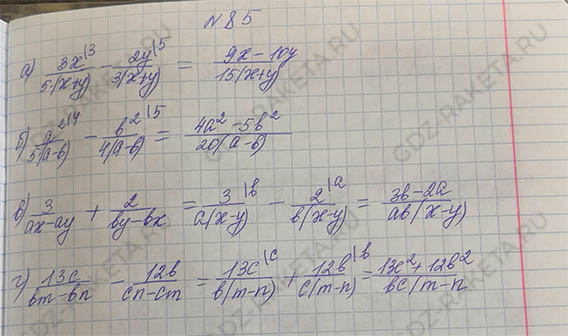 №85
а) 3x|3 / 5(x+y) − 2y|5 / 3(x+y) = 9x−10y / 15(x+y)
б) a²|4 / 5(a−b) − b²|5 / 4(a−b) = 4a²−5b² / 20(a−b)
в) 3 / ax−ay + 2 / by−bx = 3|b / a(x−y) − 2|a / b(x−y) = 3b−2a / ab(x−y)
г) 13c / bm−bn − 12b / cn−cm = 13c|c / b(m−n) + 12b|b / c(m−n) = 13c²+12b² / bc(m−n
GDZ-RAKETA.RU